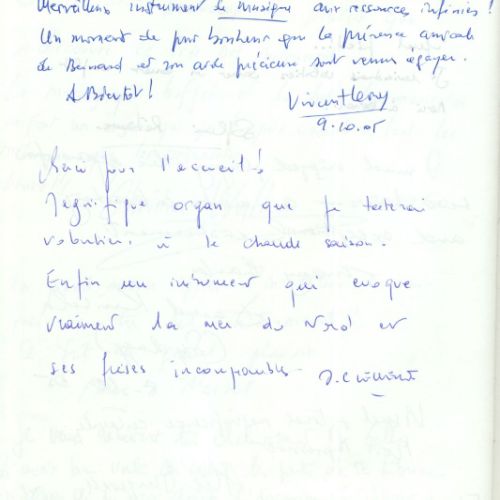 Merveilleux instrument de musique aux ressources infinies !
Un moment de pur bonheur que la présence amicale
de Bernard et son aide précieuse sont venus égayer.
A Bientôt !
Vincent
9.10.05
Merci pour l'accueil !
Magnifique organ que je testerai
volontiers à la chaude saison.
Enfin un instrument qui evoque
vraiment la mer du Nord et
ses frises incomparables.